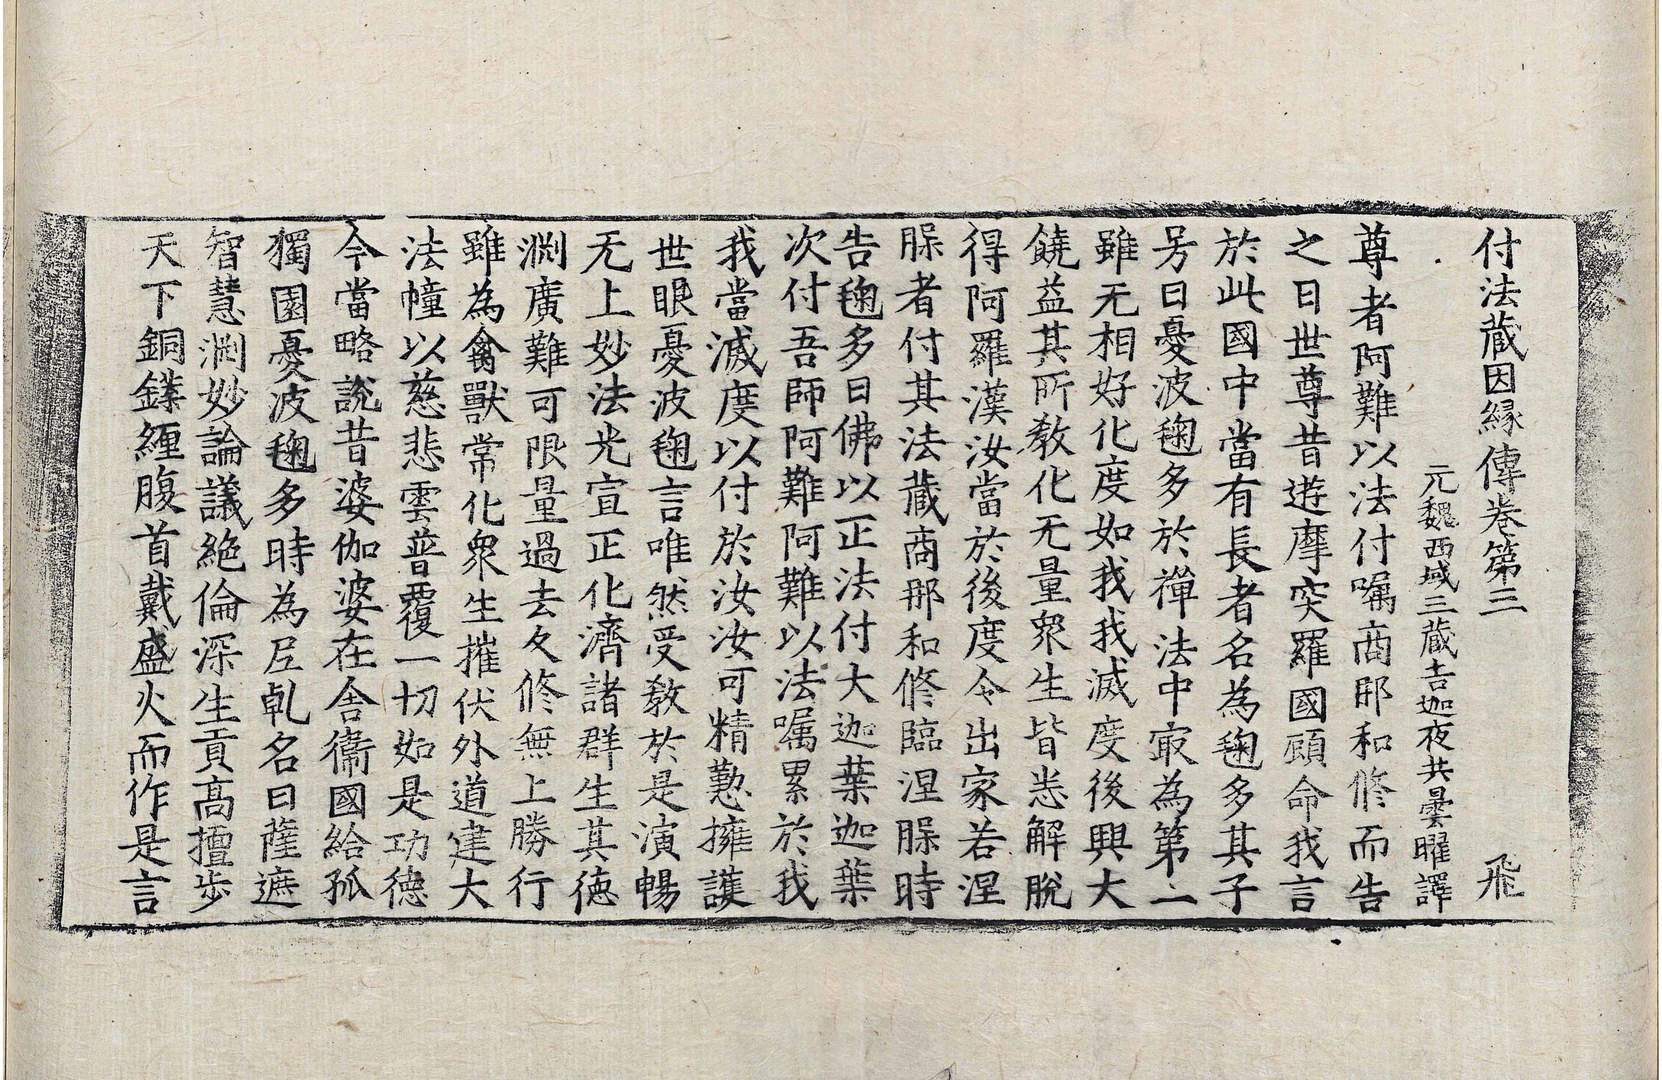 付法藏因緣傳卷第三 飛
元魏西域三藏吉迦夜共曇曜譯
尊者阿難以法付嘱商那和修而告
之曰世尊昔遊摩突羅國顧命我言
於此國中當有長者名為毱多其子
号曰憂波毱多於禪法中㝡為第一
雖无相好化度如我我滅度後興大
饒益其所教化无量衆生皆悉解脫
得阿羅漢汝當於後度令出家若涅
槃者付其法藏商那和修臨涅槃時
告毱多曰佛以正法付大迦葉迦葉
次付吾師阿難阿難以法嘱累於我
我當滅度以付於汝汝可精懃擁護
世眼憂波毱言唯然受教於是演暢
无上妙法光宣正化濟諸群生其德
渊廣難可限量過去久修無上勝行
雖為禽獸常化衆生摧伏外道建大
法幢以慈悲雲普覆一切如是功德
今當略說昔婆伽婆在舍衞國給孤
獨園憂波毱多時為尼乹名曰薩遮
智慧渊妙論議絶倫深生貢高擅步
天下銅鍱纏腹首戴盛火而作是言